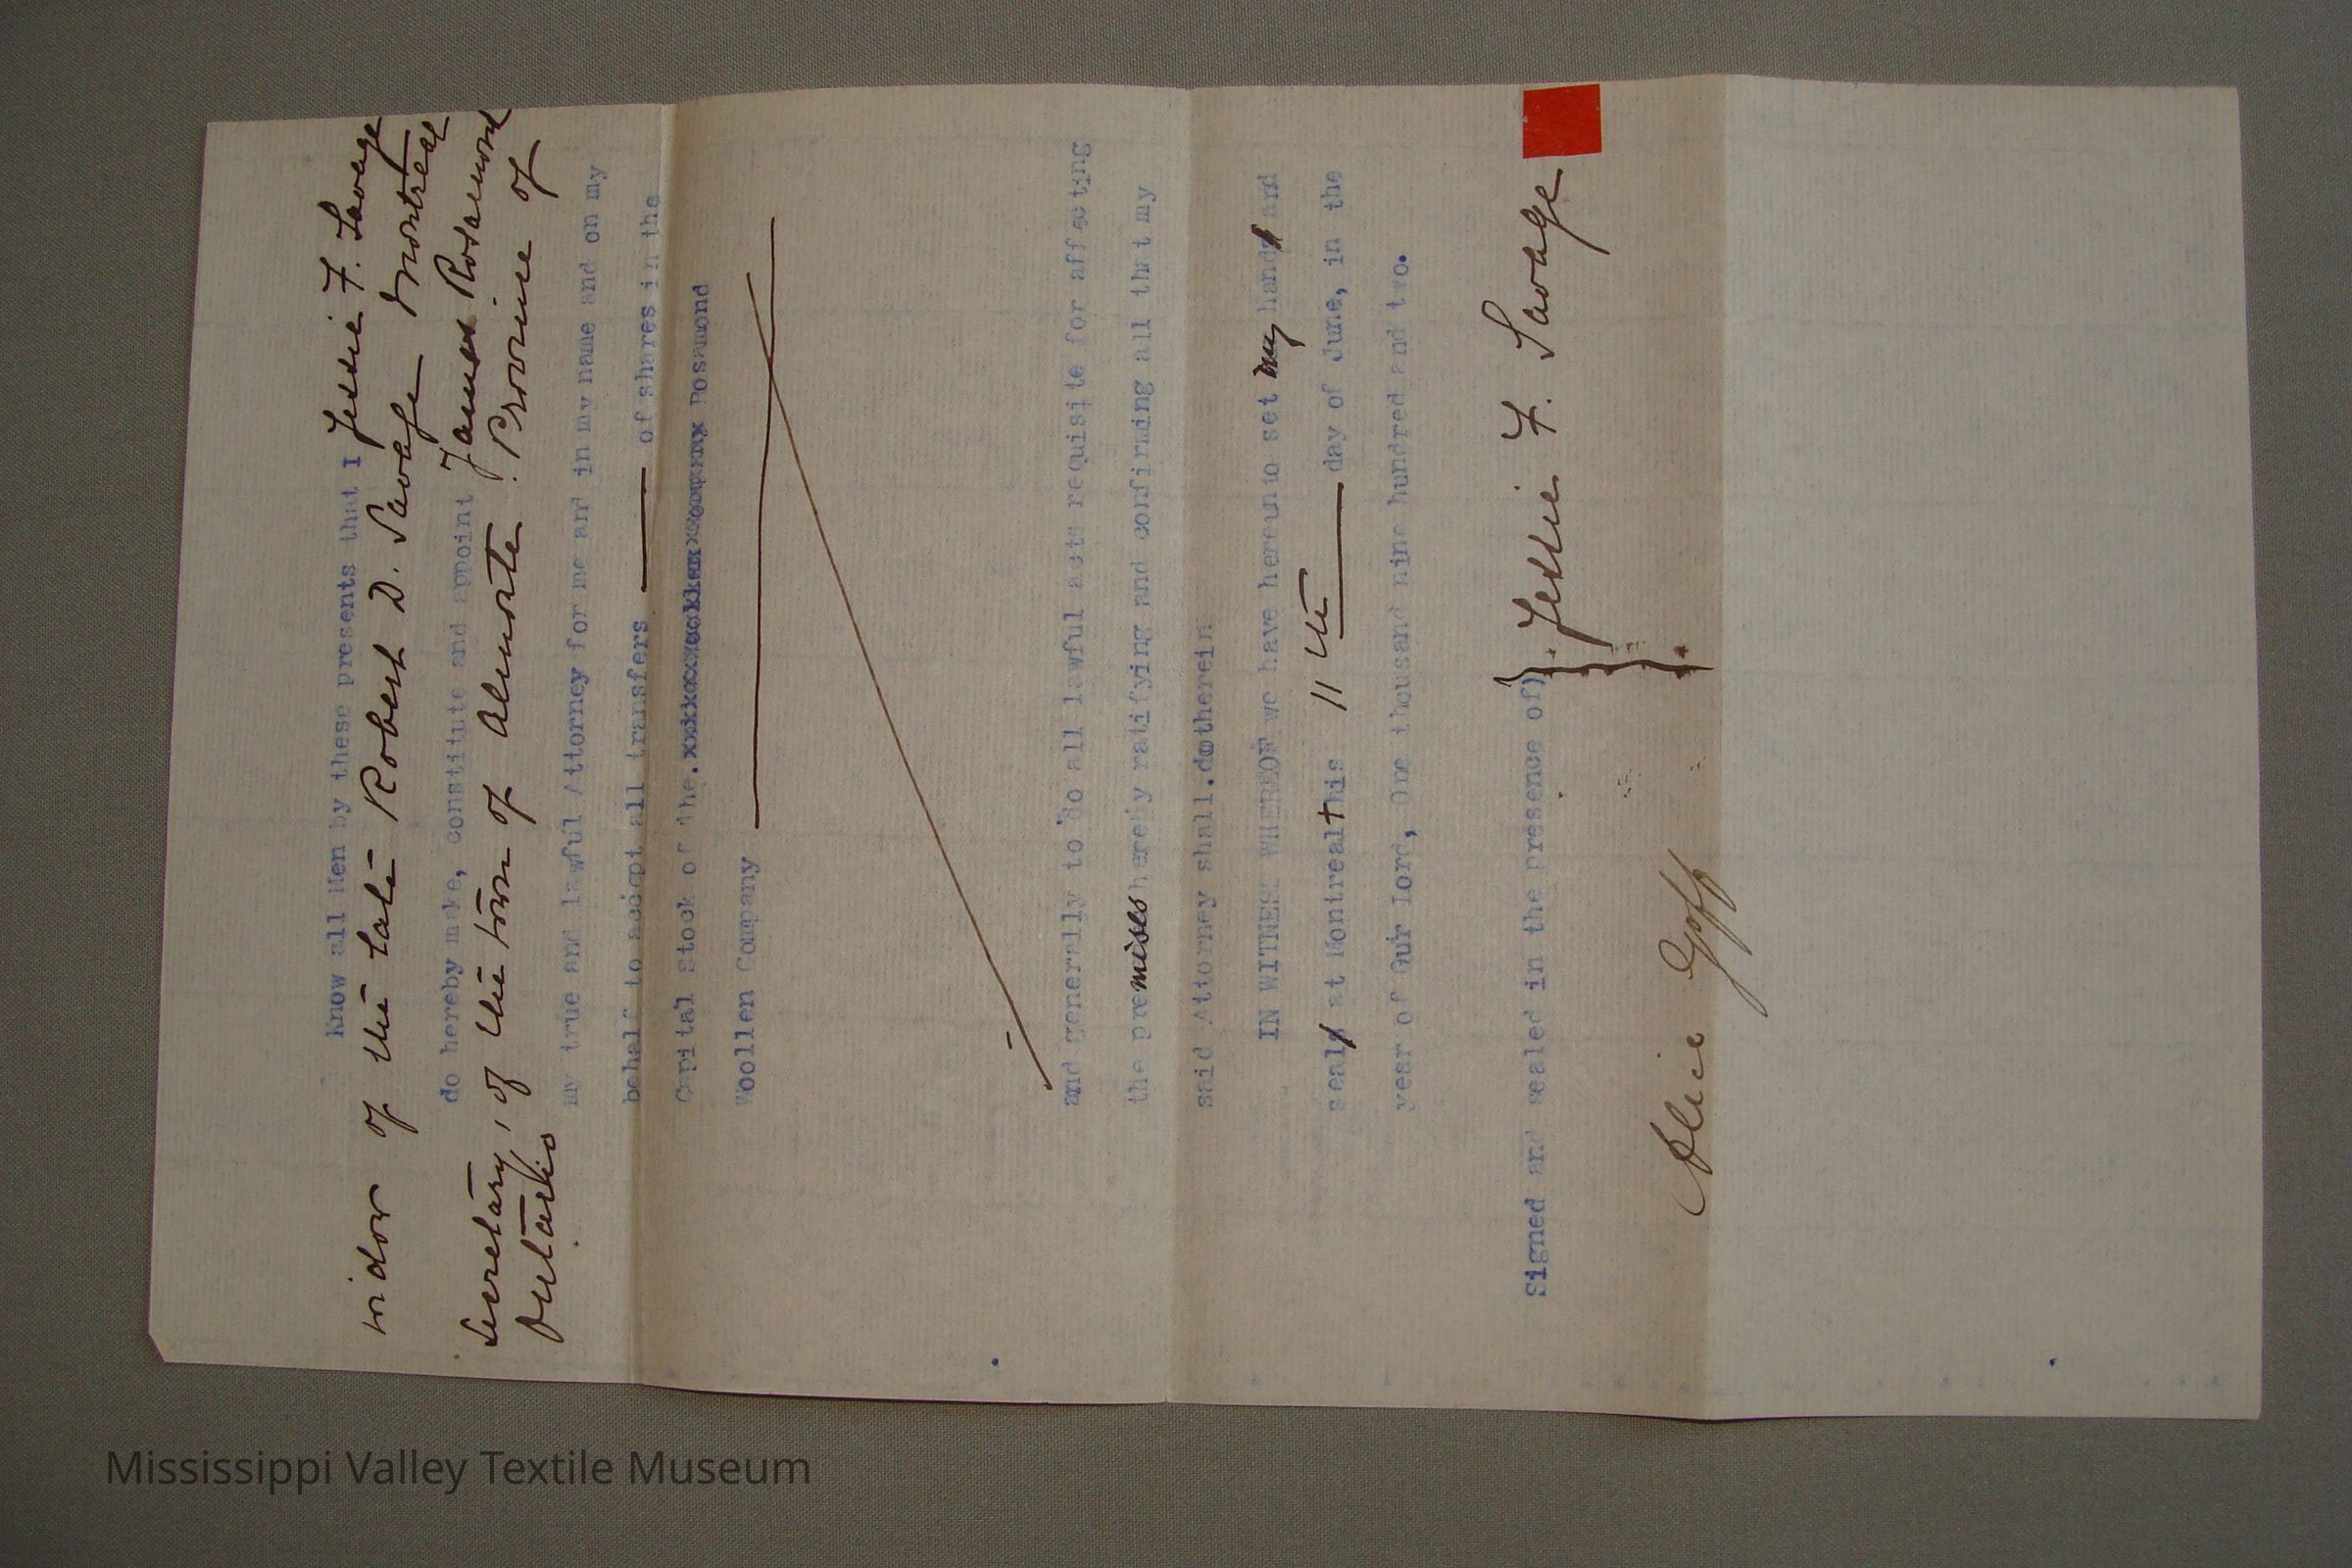 Know all Men by these presents that I Jessie F. Savage
widow of the late Robert D. Savage Montreal
do hereby make, constitute and appoint James Rosamond
Secretary, of the town of Almonte Province of
Ontario
my true and lawful Attorney for me and in my name and on my
behalf to accept all transfers —— of shares in the
Capital Stock of The. Rosamond
Woollen Company
and generally to do all lawful acts requisite for affecting
the premises hereby ratifying and confirming all that my
said Attorney shall.dotherein
IN WITNESS WHEREOF we have hereunto set my hand and
seal at Montreal this 11th day of June, in the
year of Our Lord, One thousand nine hundred and two.
Signed and sealed in the presence of) Jessie F. Savage
Alice Goff
Mississippi Valley Textile Museum